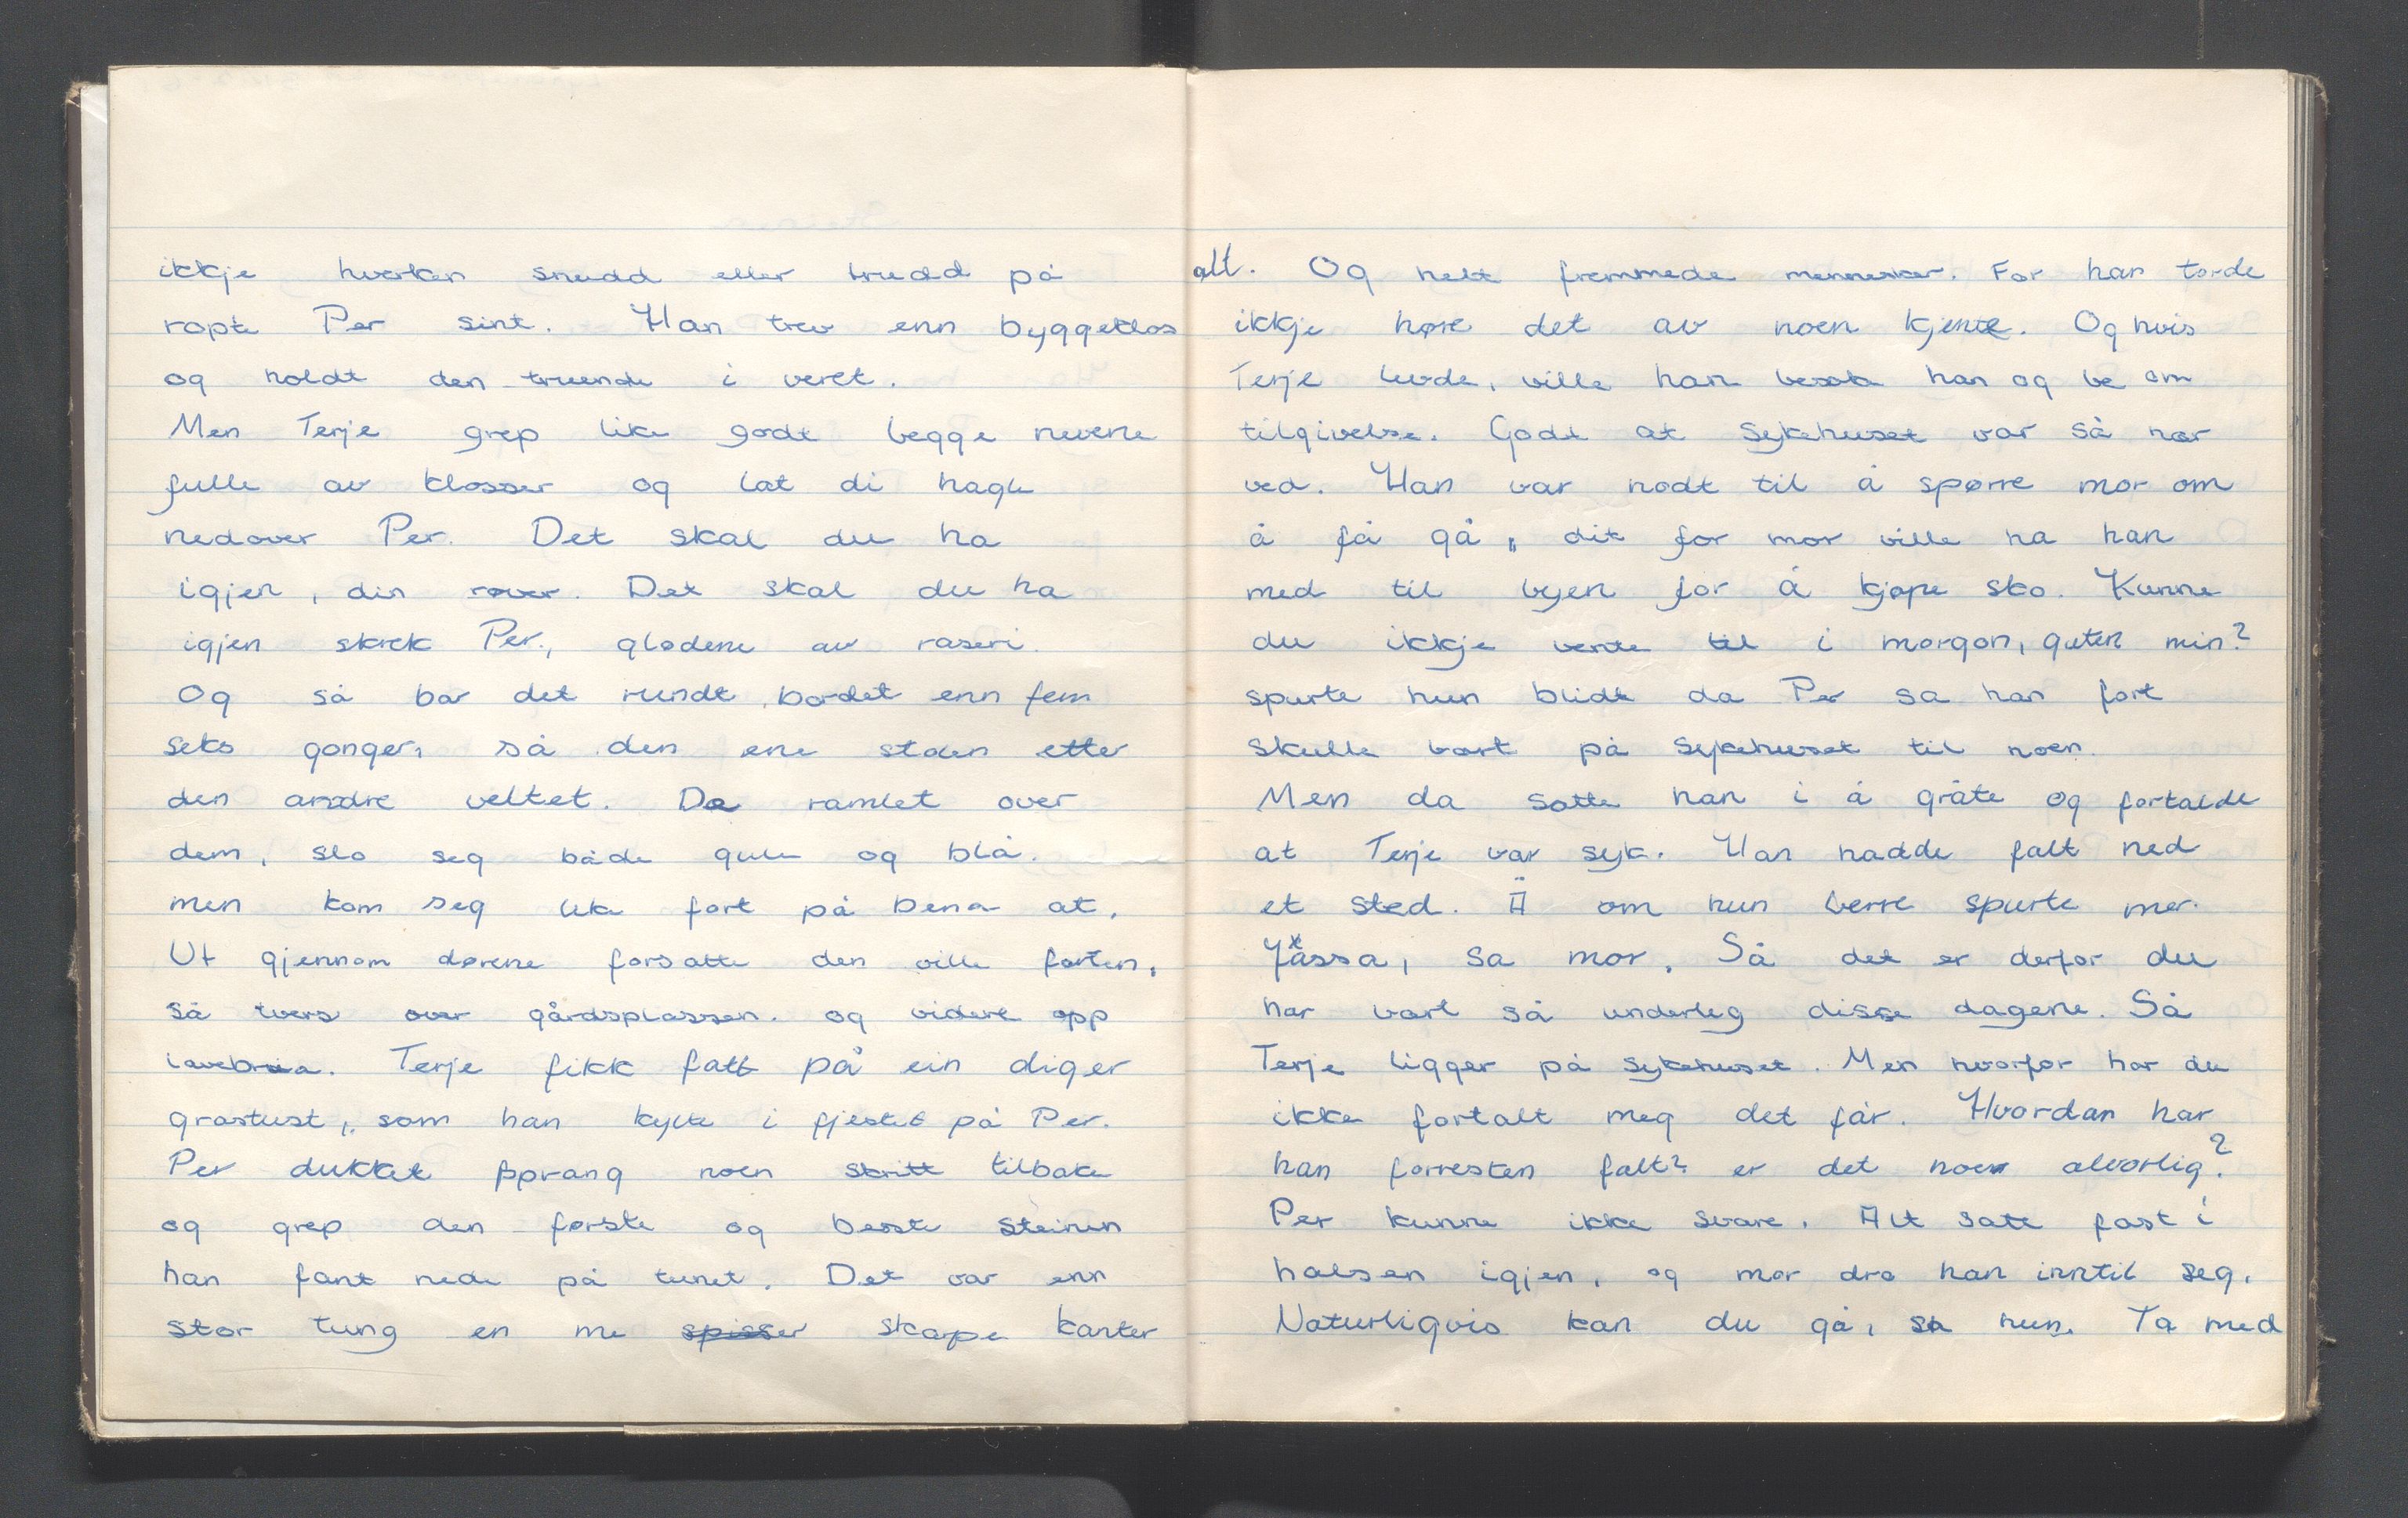 ikkje hverken snudd eller trudd på
ropte Per sint. Han trev enn byggeklos
og holdt den truende i veret.
Men Terje grep like godt begge nevene
fulle av klosser og lat di hagle
nedover Per. Det skal du ha
igjen, din røver. Det skal du ha
igjen skrek Per., glødene av raseri.
Og så bar det rundt bordet enn fem
seks gonger, så den ene stolen etter
den andre veltet. De ramlet over
dem, slo seg både gule og blå.
men kom seg like fort på bena at.
Ut gjennom dørene forsatte den ville farten,
så tvers over gårdsplassen. og videre opp
låvebrua. Terje fikk fatt på ein diger
grastust, som han kylte i fjeset på Per.
Per dukket sprang noen skritt tilbake
og grep den første og beste steinen
han fant nede på tunet. Det var enn
stor tung en me spisser skarpe kanter
alt. Og helt fremmede mennesker. For han torde
ikkje høre det av noen kjente. Og hvis
Terje levde, ville han besøke han og be om
tilgivelse. Godt at sykehuset var så nær
ved. Han var nødt til å spørre mor om
å få gå, dit for mor ville ha han
med til byen for å kjøpe sko. Kunne
du ikkje vente til i morgon, guten min?
spurte hun blidt da Per sa han fort
skulle bort på sykehuset til noen.
Men da satte han i å gråte og fortalde
at Terje var syk. Han hadde falt ned
et sted. Å om hun berre spurte mer.
Jassa, sa mor. Så det er derfor du
har vært så underleg disse dagene. Så
Terje ligger på sykehuset. Men hvorfor har du
ikke fortalt meg det før. Hvordan har
han forresten falt? er det noen alvorlig?
Per kunne ikke svare. Alt satt fast i
halsen igjen, og mor dro han inntil seg.
Naturligvis kan du gå, sa hun. Ta med